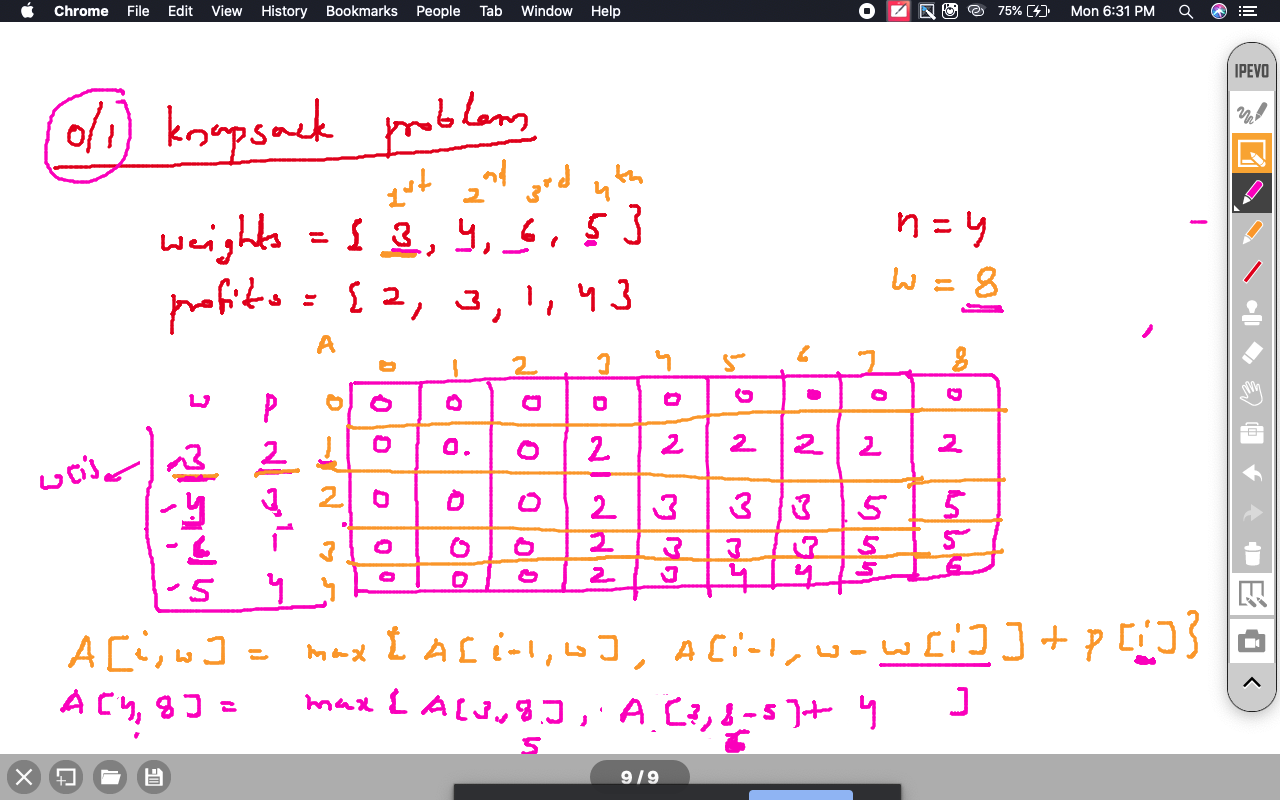 Chrome File Edit View History Bookmarks People Tab Window Help 75% Mon 6:31 PM
IPEVO
0/1 knapsack problem
1st 2nd 3rd 4th
weights = { 3, 4, 6, 5 }
n = 4
profits = { 2, 3, 1, 4 }
w = 8
A 0 1 2 3 4 5 6 7 8
w p 0 0 0 0 0 0 0 0 0 0
w[i] 3 2 1 0 0 0 2 2 2 2 2 2
4 3 2 0 0 0 2 3 3 3 5 5
6 1 3 0 0 0 2 3 3 3 5 5
5 4 4 0 0 0 2 3 4 4 5 6
A[i,w] = max { A[i-1,w], A[i-1, w-w[i]] + p[i]}
A[4,8] = max { A[3,8], A[3,8-5]+ 4 ]
5 6
9 / 9